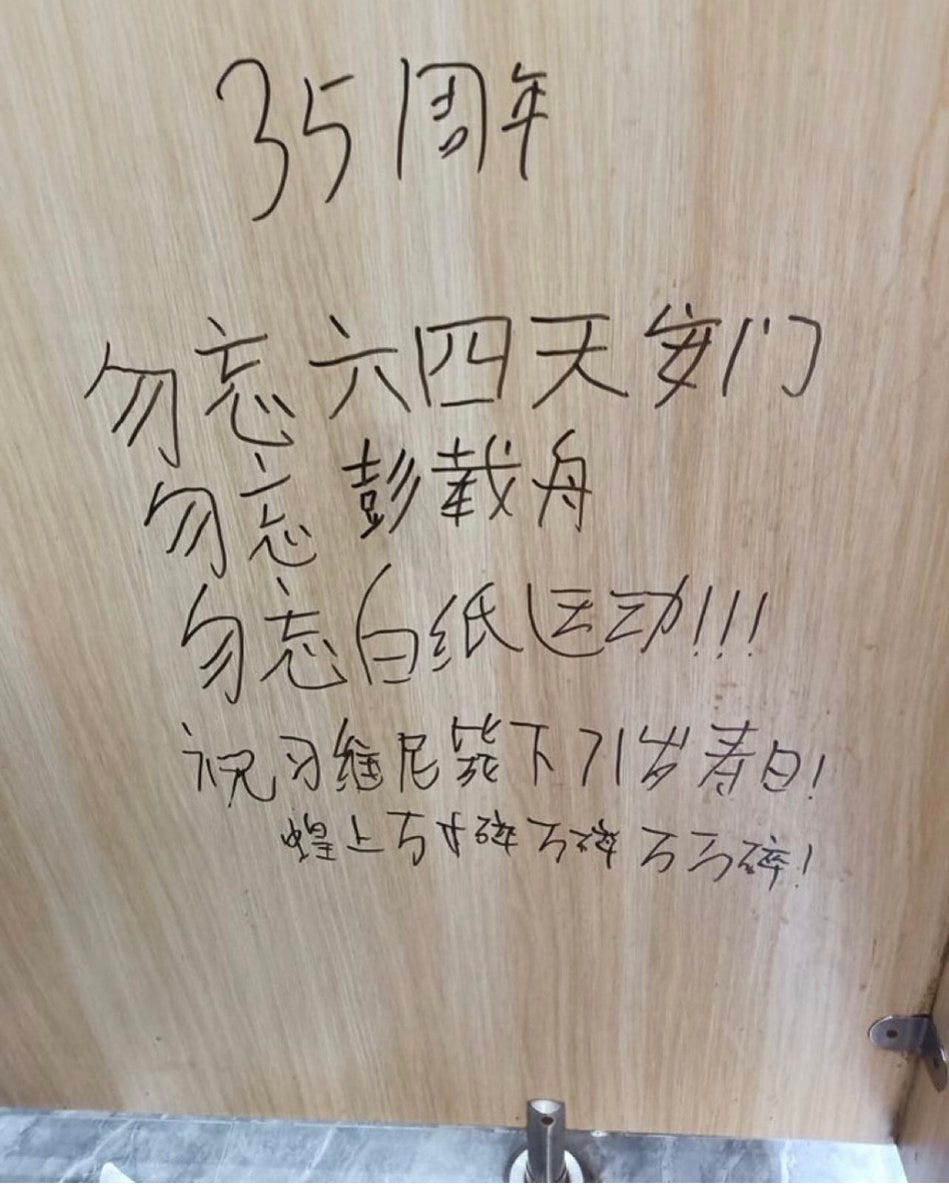 35周年
勿忘六四天安门
勿忘彭载舟
勿忘白纸运动!!!
祝习维尼陛下71岁寿日!
蝗上万碎万碎万万碎!